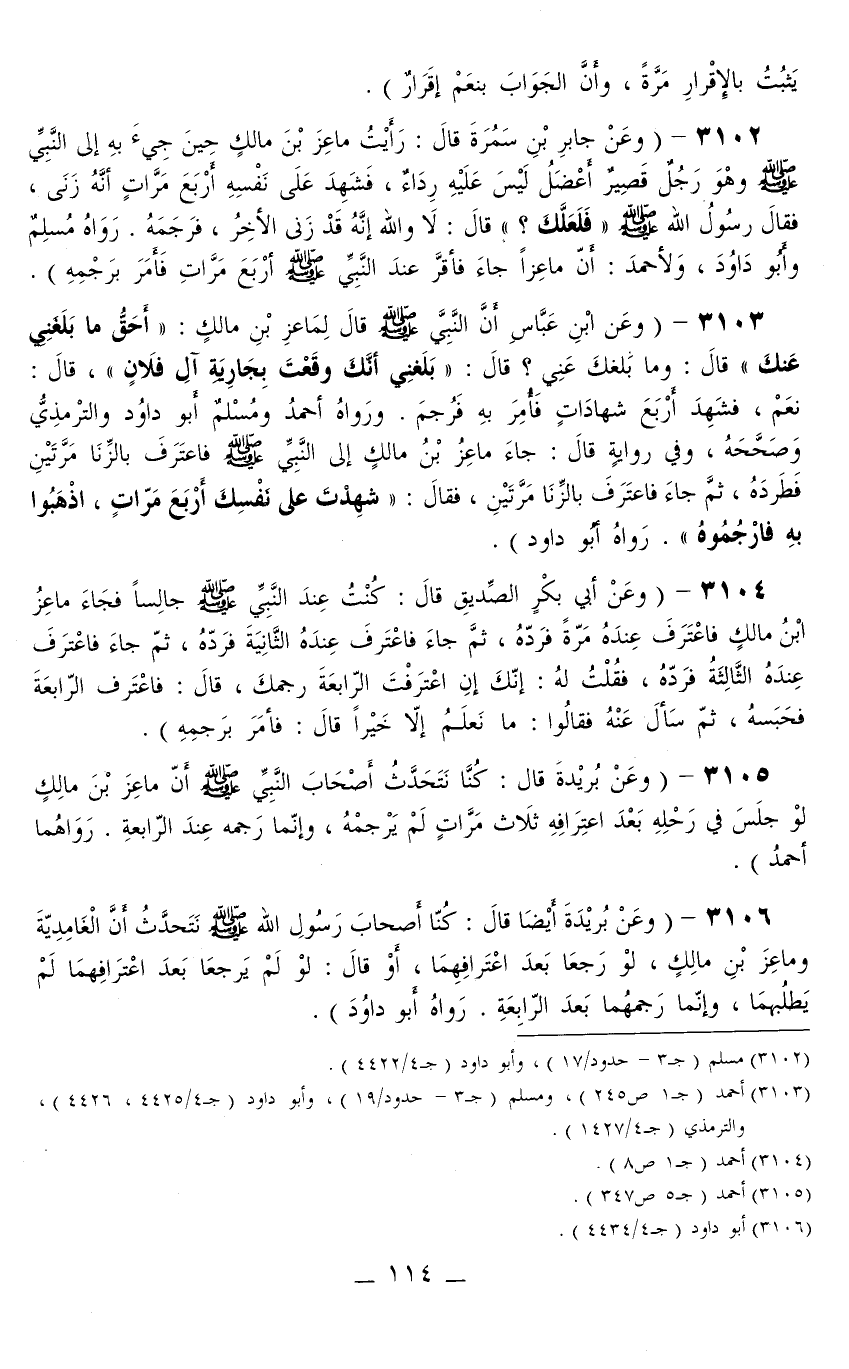 يَثبُتُ بالإِقْرارِ مَرَّةً ، وأَنَّ الجَوَابَ بنعَمْ إقَرَارٌ ) .
٣١٠٢ – ( وعَنْ جابرِ بْنِ سَمُرَةَ قالَ : رَأَيْتُ ماعِزَ بْنَ مالكٍ حِينَ جِيءَ بهِ إلى النَّبِيِّ
ﷺ وهْوَ رَجُلٌ قَصِيرٌ أَعْضَلُ لَيْسَ عَلَيْهِ رِدَاءٌ ، فَشَهِدَ عَلَى نَفْسِهِ أَرْبَعَ مَرَّاتٍ أنَّهُ زَنَى ،
فقالَ رسُولُ الله ﷺ « فَلَعَلَّكَ ؟ » قالَ : لَا والله إنَّهُ قَدْ زَنى الأخِرُ ، فَرجَمَهُ . رَوَاهُ مُسلِمٌ
وأَبُو دَاوُدَ ، وَلأحمدَ : أنّ ماعِزاً جاءَ فأقرَّ عندَ النَّبِيِّ ﷺ أرْبَعَ مَرَّاتٍ فَأَمَرَ بَرجْمِهِ ) .
٣١٠٣ – ( وعَن ابْنِ عَبَّاسٍ أنَّ النَّبِيَّ ﷺ قالَ لِمَاعزِ بْنِ مالكٍ : « أَحَقُّ ما بَلَغَنِي
عَنكَ » قالَ : وما بَلغكَ عَنِي ؟ قالَ : « بَلَغنِي أنَّكَ وقَعْتَ بِجَارِيَةِ آلِ فَلَانٍ » ، قالَ :
نعَمْ ، فشَهِدَ أَرْبَعَ شهادَاتٍ فَأُمِرَ بهِ فَرُجمَ . ورَواهُ أحمدُ ومُسْلمٌ أبو داوُد والترْمذِيُّ
وَصَحَّحَهُ ، وفي روايةٍ قالَ : جاءَ ماعِزُ بْنُ مالكٍ إلى النَّبِيِّ ﷺ فاعتَرَفَ بالزِّنَا مرَّتَيْنِ
فَطَردَهُ ، ثمَّ جاءَ فاعتَرَفَ بالزِّنَا مرَّتَيْنِ ، فقالَ : « شهِدْتَ على نَفْسِكَ أَرْبَعَ مَرّاتٍ ، اذْهَبُوا
بهِ فارْجُمُوهُ » . رَواهُ أبُو داود ) .
٣١٠٤ – ( وعَنْ أبي بكْرٍ الصِّديقِ قالَ : كُنْتُ عِندَ النَّبِيِّ ﷺ جالِساً فجَاءَ ماعِزُ
ابْنُ مالكٍ فاعْتَرَفَ عِندَهُ مَرّةً فَردّهُ ، ثمَّ جاءَ فاعْتَرفَ عِندَهُ الثَّانِيَةَ فَردّهُ ، ثمّ جاءَ فاعْتَرَفَ
عِندَهُ الثَّالِثَةُ فَردّهُ ، فقُلْتُ لهُ : إنّكَ إنِ اعْتَرفْتَ الرّابعَةَ رجمكَ ، قالَ : فاعْتَرف الرّابعَةَ
فحَبَسهُ ، ثمّ سَألَ عَنْهُ فقالُوا : ما نَعلَـمُ إلّا خَيْراً قالَ : فأمَرَ بَرجمِهِ ) .
٣١٠٥ – ( وعَنْ بُريْدةَ قال : كُنَّا نَتَحَدَّثُ أصْحَابَ النَّبِيِّ ﷺ أنّ ماعِزَ بْنَ مالِكٍ
لوْ جلَسَ في رَحْلِهِ بَعْدَ اعتِرافِهِ ثلَاث مرَّاتٍ لَمْ يَرْجمْهُ ، وإنّما رَجمه عِندَ الرّابعةِ . رَوَاهُما
أحمدُ ) .
٣١٠٦ – ( وعَنْ بُريْدَةَ أَيْضَا قالَ : كُنّا أصحابَ رَسُولِ الله ﷺ نَتَحدَّثُ أنَّ الْغَامِدِيّةَ
وماعِزَ بْنِ مالِكٍ ، لوْ رَجعَا بَعدَ اعْتَرافِهِمَا ، أوْ قالَ : لوْ لَمْ يَرجعَا بَعدَ اعْتَرافِهِمَا لَمْ
يَطلُبهمَا ، وإنّما رَجمهُما بَعدَ الرّابِعَةِ . رَواهُ أَبو داوُدَ ) .
(٣١٠٢) مسلم ( جـ٣ – حدود/١٧ ) ، وأبو داود ( جـ٤/٤٤٢٢ ) .
(٣١٠٣) أحمد ( جـ١ ص٢٤٥ ) ، ومسلم ( جـ٣ – حدود/١٩ ) ، وأبو داود ( جـ٤/٤٤٢٥ ، ٤٤٢٦ ) ،
والترمذي ( جـ٤/١٤٢٧ ) .
(٣١٠٤) أحمد ( جـ١ ص٨ ) .
(٣١٠٥) أحمد ( جـ٥ ص٣٤٧ ) .
(٣١٠٦) أبو داود ( جـ٤/٤٤٣٤ ) .
– ١١٤ –